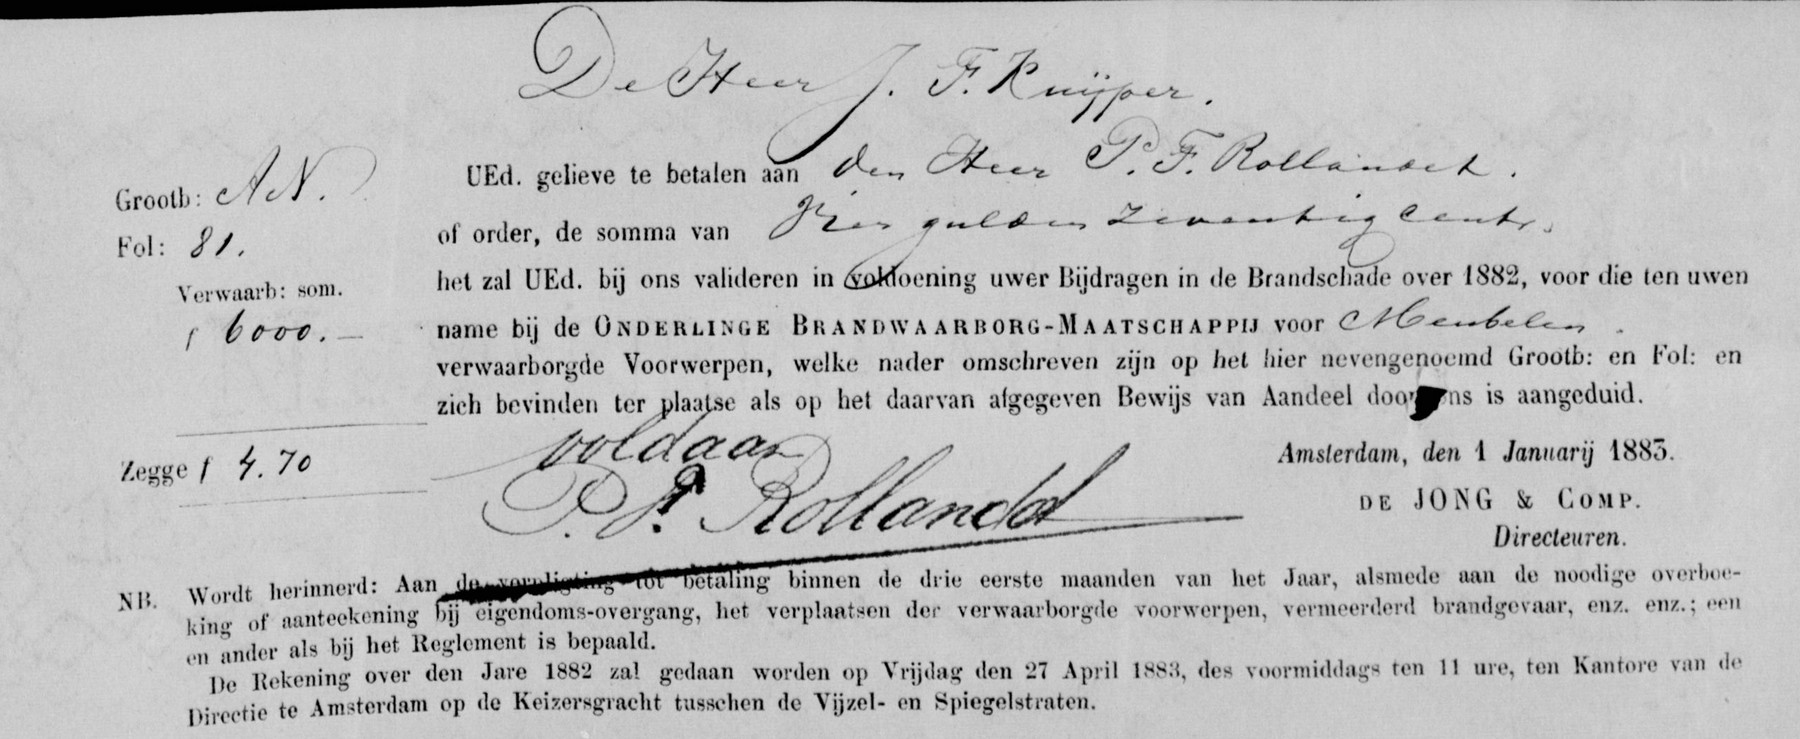 De Heer J. F. Kuijper.
Grootb: AN.
Fol: 81.
Verwaarb: som.
f 6000.—
Zegge f 4.70
UEd. gelieve te betalen aan den Heer P. F. Rollandet.
of order, de somma van Vier gulden zeventig cents.
het zal UEd. bij ons valideren in voldoening uwer Bijdragen in de Brandschade over 1882, voor die ten uwen
name bij de ONDERLINGE BRANDWAARBORG-MAATSCHAPPIJ voor Meubelen.
verwaarborgde Voorwerpen, welke nader omschreven zijn op het hier nevengenoemd Grootb: en Fol: en
zich bevinden ter plaatse als op het daarvan afgegeven Bewijs van Aandeel door ons is aangeduid.
voldaan
P. F. Rollandet
Amsterdam, den 1 Januarij 1883.
DE JONG & COMP.
Directeuren.
NB. Wordt herinnerd: Aan de verpligting tot betaling binnen de drie eerste maanden van het Jaar, alsmede aan de noodige overboe-
king of aanteekening bij eigendoms-overgang, het verplaatsen der verwaarborgde voorwerpen, vermeerderd brandgevaar, enz. enz.; een
en ander als bij het Reglement is bepaald.
De Rekening over den Jare 1882 zal gedaan worden op Vrijdag den 27 April 1883, des voormiddags ten 11 ure, ten Kantore van de
Directie te Amsterdam op de Keizersgracht tusschen de Vijzel- en Spiegelstraten.